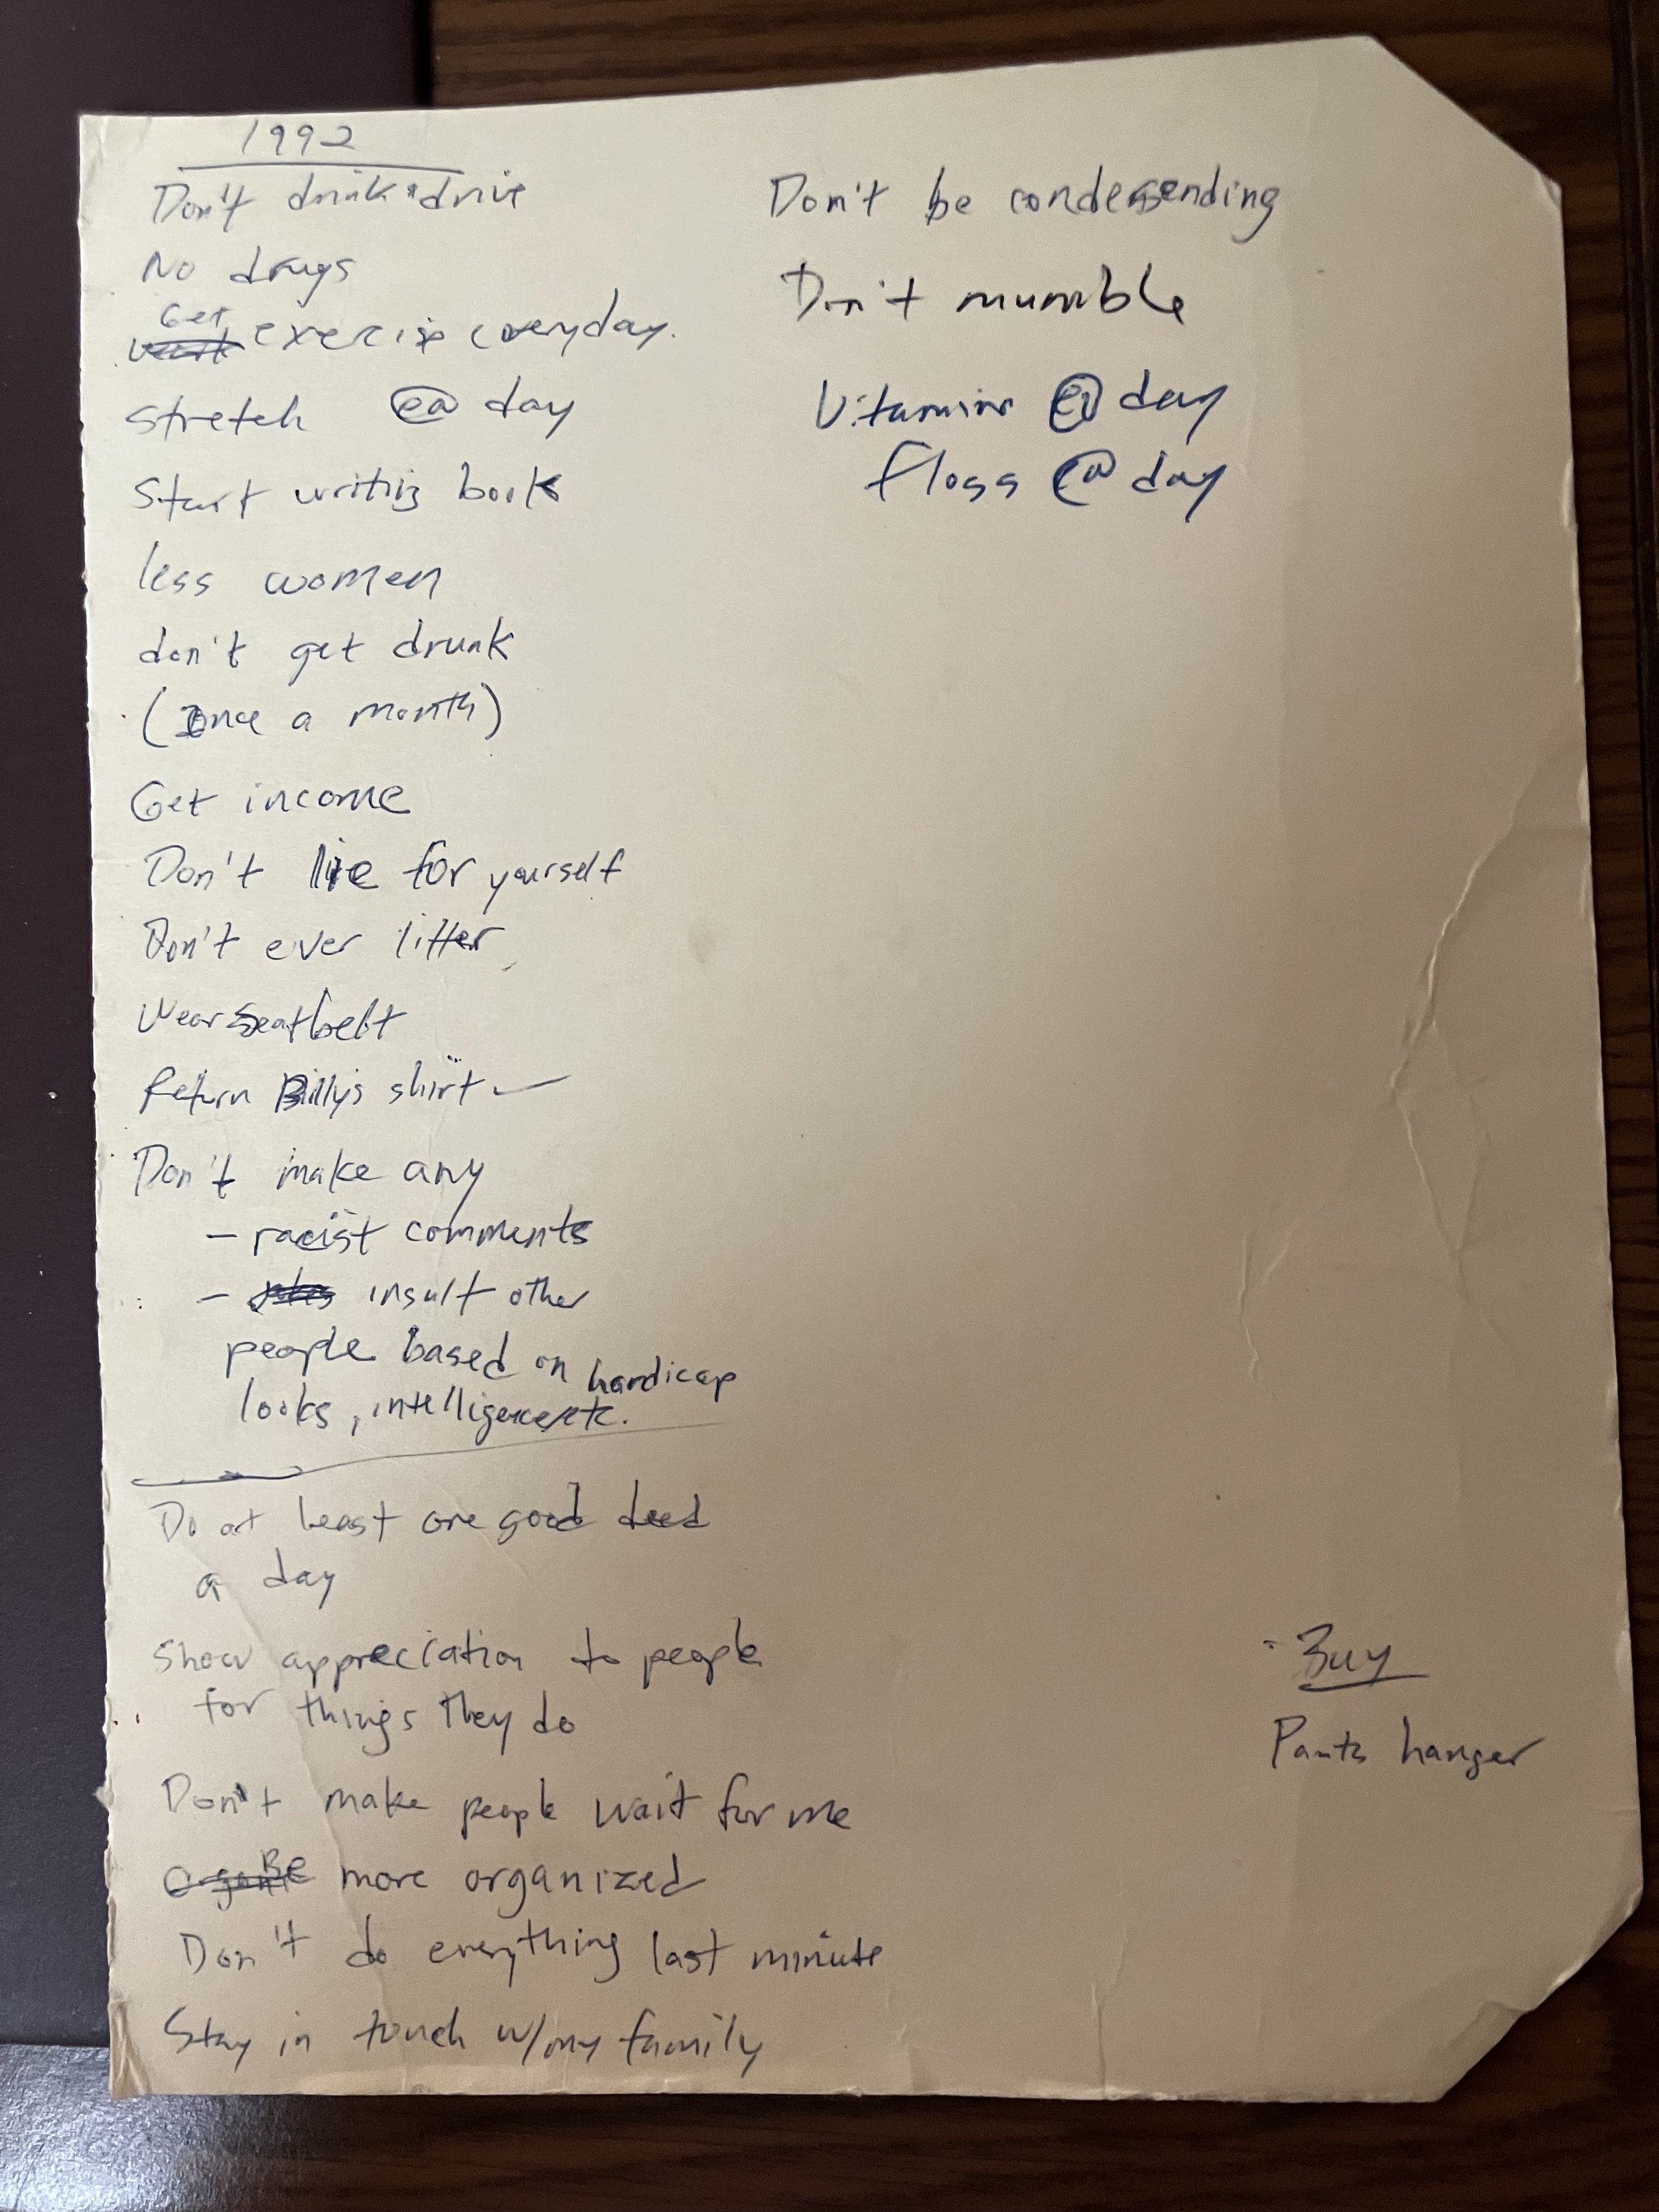 1992
Don't drink & drive
No drugs
Get exercise everyday.
Stretch ea day
Start writing book
less women
don't get drunk
(once a month)
Get income
Don't live for yourself
Don't ever litter
Wear seatbelt
Return Billy's shirt ✓
Don't make any
- racist comments
- jokes insult other
people based on handicap
looks, intelligence etc.
Do at least one good deed
a day
Show appreciation to people
for things they do
Don't make people wait for me
Organize Be more organized
Don't do everything last minute
Stay in touch w/my family
Don't be condesending
Don't mumble
Vitamins ea day
floss ea day
Buy
Pants hanger